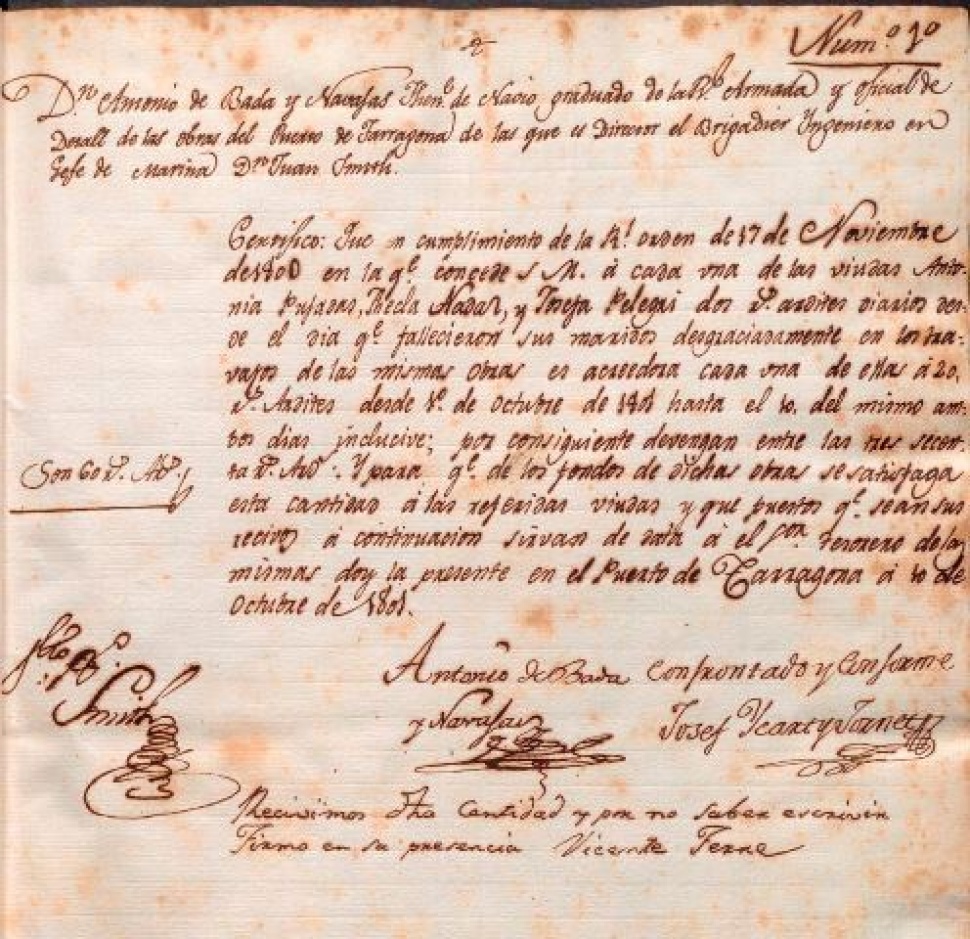 Num.º 1º
D.n Antonio de Bada y Navajas Then.e de Navio graduado de la R.l Armada y oficial de
Detall de las obras del Puerto de Tarragona de las que es Director el Brigadier Ingeniero en
Gefe de Marina D.n Juan Smith.
Certifico: Que en cumplimiento de la R.l orden de 17 de Noviembre
de 1800 en la q.e concede S M. à cada una de las viudas Anto-
nia Pujadas, Thecla Nadal, y Josefa Pelegri dos r.s ardites diarios des-
de el dia q.e fallecieron sus maridos desgraciadamente en los tra-
vajos de las mismas obras es acreedora cada una de ellas à 20.
r.s Ardites desde 1.º de Octubre de 1801 hasta el 10. del mismo am-
bos dias inclucive; por consiguiente devengan entre las tres secen-
ta r.s Ard.s Y para q.e de los fondos de dichas obras se satisfaga
Son 60 r.s Ard.s
esta cantidad à las referidas viudas y que puestos q.e sean sus
recivos à continuacion sirvan de data à el S.or Tesorero de las
mismas doy la presente en el Puerto de Tarragona à 10 de
Octubre de 1801.
Antonio de Bada Confrontado y Conforme
y Navajas Josef Ycart y Tornet
Smith
Recivimos dha Cantidad y por no saber escrivir
Firmo en su presencia Vicente Ferre